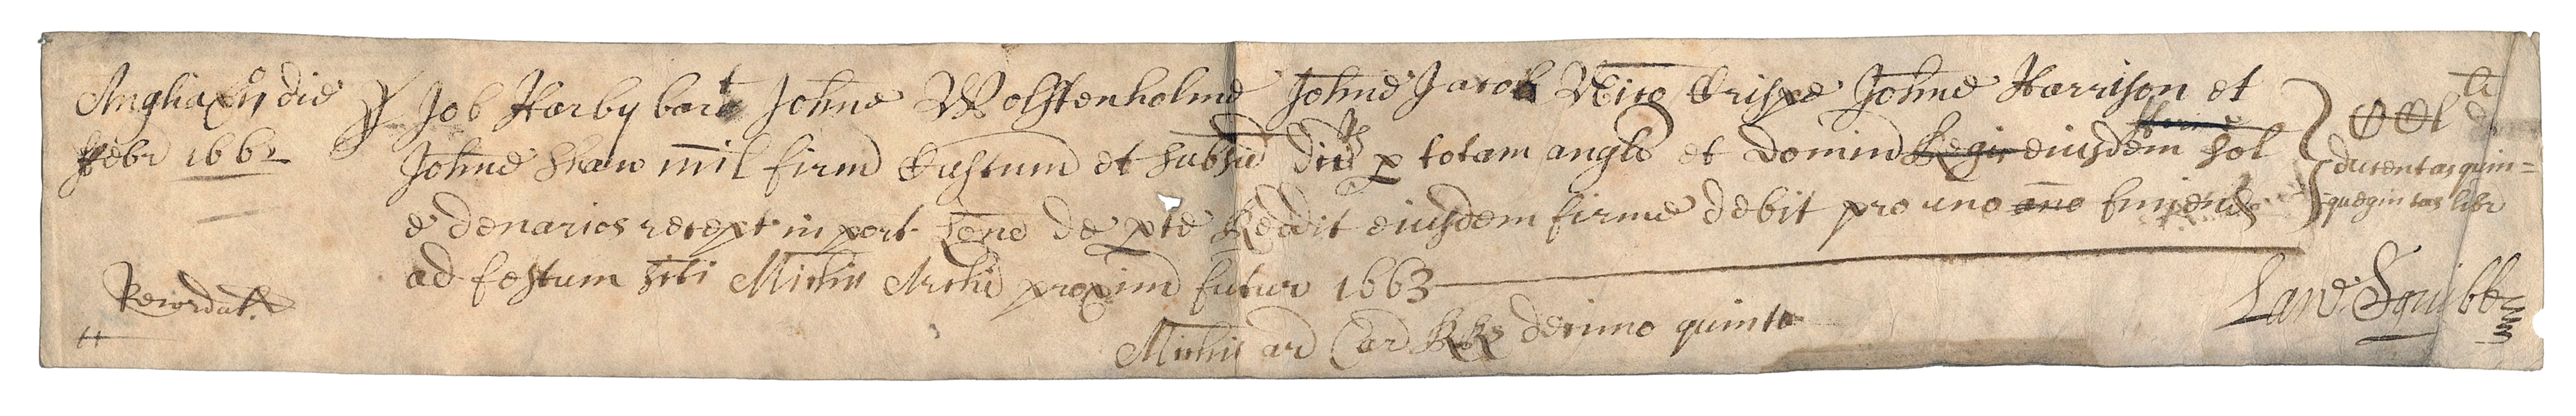 Anglia xij° die
Febr 1662
Recordat.
Job Harby bart Johne Wolstenholme Johne Jacob Nico Crispe Johne Harrison et
Johne Shaw mil firm Custum et Subsid p totam angle et domin Regis eiusdem sol
e denarios recept in port Lond de pte Reddit eiusdem firme debit pro uno anno finiend
ad festum Michis Archi proxim futur 1663
Michis ar Car RRs decimo quinto
CCL li
ducentas quin=
quagintas libr
Law: Squibb